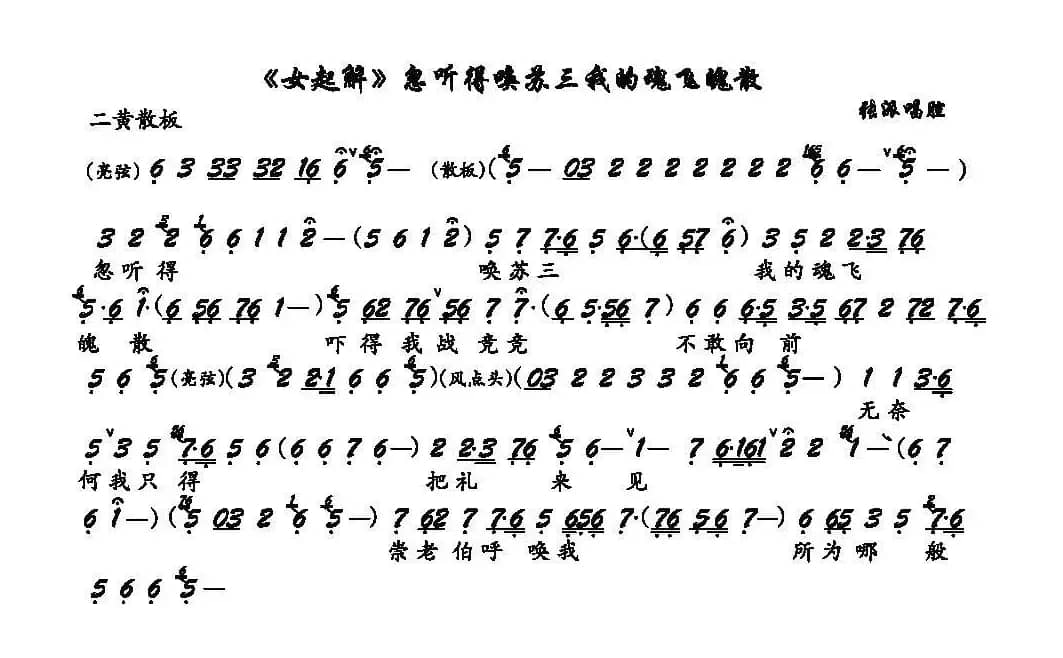 《女起解》忽听得唤苏三我的魂飞魄散
二黄散板
张派唱腔
(亮弦) 6 3 33 32 16 6 ∨ 5 — (散板) ( 5 — 03 2 2 2 2 2 2 2 6 6 — ∨ 5 — )
3 2 2 6 6 1 1 2 — ( 5 6 1 2 ) 5 7 7·6 5 6·( 6 57 6 ) 3 5 2 2·3 76
忽听得 唤苏三 我的魂飞
5·6 1·( 6 56 76 1 — ) 5 62 76 ∨ 56 7 7·( 6 5·56 7 ) 6 6 6·5 3·5 67 2 72 7·6
魄散 吓得我战兢兢 不敢向前
5 6 5 (亮弦) ( 3 2 2·1 6 6 5 ) (风点头) ( 03 2 2 3 3 2 6 6 5 — ) 1 1 3·6
无奈
5 ∨ 3 5 7·6 5 6 ( 6 6 7 6 — ) 2 2·3 76 5 6 — ∨ 1 — 7 6·161 ∨ 2 2 1 — ( 6 7
何我只得 把礼来见
6 1 — ) ( 5 03 2 6 5 — ) 7 62 7 7·6 5 656 7·( 76 56 7 — ) 6 65 3 5 7·6
崇老伯呼唤我 所为哪般
5 6 6 5 —